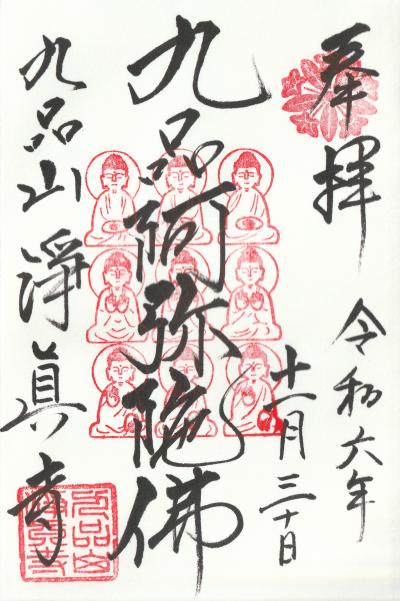 奉拝
令和六年
十一月三十日
九品阿弥陀佛
九品山淨眞寺